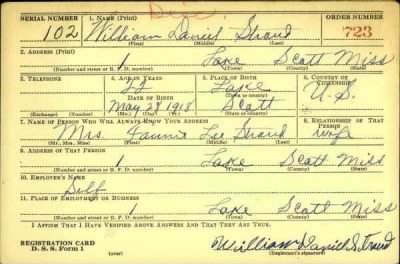 SERIAL NUMBER 1. NAME (Print) ORDER NUMBER
102 William Daniel Stroud 723
(First) (Middle) (Last)
2. ADDRESS (Print)
1 Lake Scott Miss
(Number and street or R. F. D. number) (Town) (County) (State)
3. TELEPHONE 4. AGE IN YEARS 5. PLACE OF BIRTH 6. COUNTRY OF CITIZENSHIP
22 Lake
DATE OF BIRTH U. S.
May 28 1918 Scott
(Exchange) (Number) (Mo.) (Day) (Yr.) (State or country)
7. NAME OF PERSON WHO WILL ALWAYS KNOW YOUR ADDRESS 8. RELATIONSHIP OF THAT PERSON
Mrs. Lee Stroud wife
(Mr., Mrs., Miss) (First) (Middle) (Last)
9. ADDRESS OF THAT PERSON
1 Lake Scott Miss
(Number and street or R. F. D. number) (Town) (County) (State)
10. EMPLOYER'S NAME
Self
11. PLACE OF EMPLOYMENT OR BUSINESS
1 Lake Scott Miss
(Number and street or R. F. D. number) (Town) (County) (State)
I AFFIRM THAT I HAVE VERIFIED ABOVE ANSWERS AND THAT THEY ARE TRUE.
REGISTRATION CARD
D. S. S. Form 1 (over) William Daniel Stroud
(Registrant's signature)